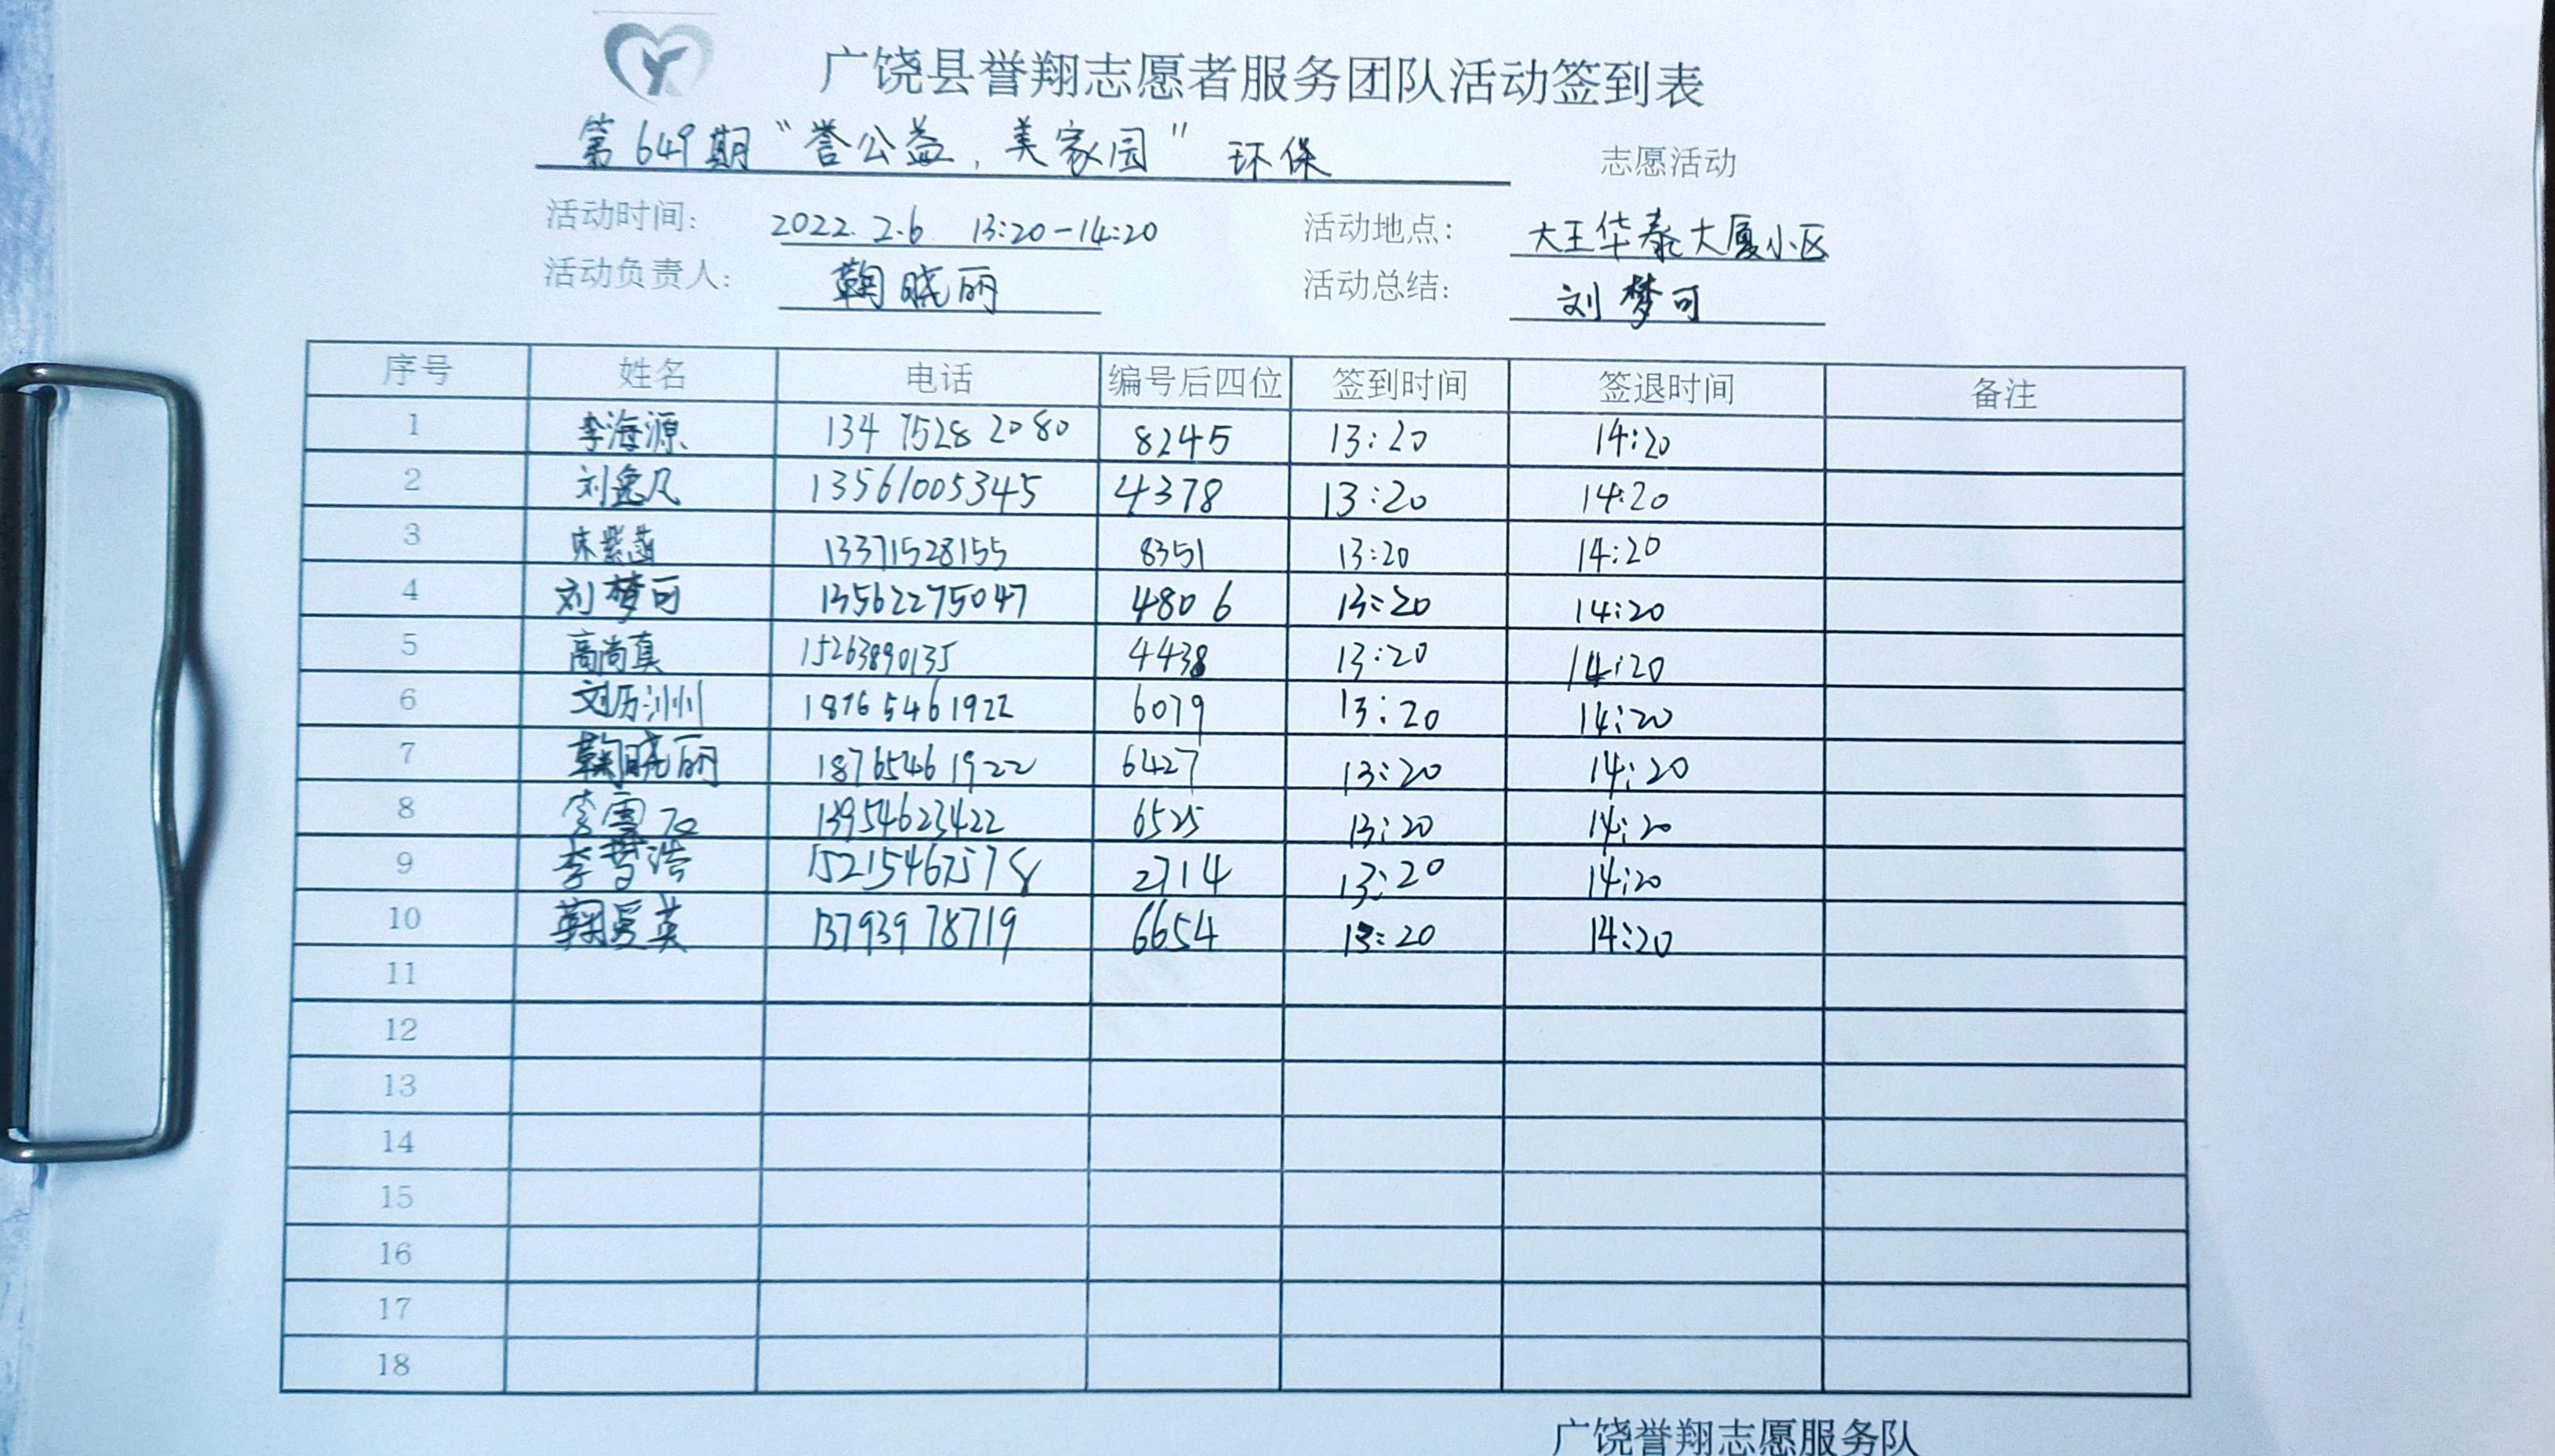 广饶县誉翔志愿者服务团队活动签到表
第649期“誉公益,美家园”环保 志愿活动
活动时间: 2022.2.6 13:20-14:20 活动地点: 大王华泰大厦小区
活动负责人: 鞠晓丽 活动总结: 刘梦可
序号 姓名 电话 编号后四位 签到时间 签退时间 备注
1 李海源 134 7528 2080 8245 13:20 14:20
2 刘逸凡 13561005345 4378 13:20 14:20
3 宋紫菡 13371528155 8351 13:20 14:20
4 刘梦可 13562275047 4806 13:20 14:20
5 高尚真 15263890135 4438 13:20 14:20
6 刘历洲 18765461922 6079 13:20 14:20
7 鞠晓丽 18765461922 6427 13:20 14:20
8 李雪 13954623422 6525 13:20 14:20
9 李哲浩 15215467578 2714 13:20 14:20
10 鞠爱英 13793978719 6654 13:20 14:20
11
12
13
14
15
16
17
18
广饶誉翔志愿服务队